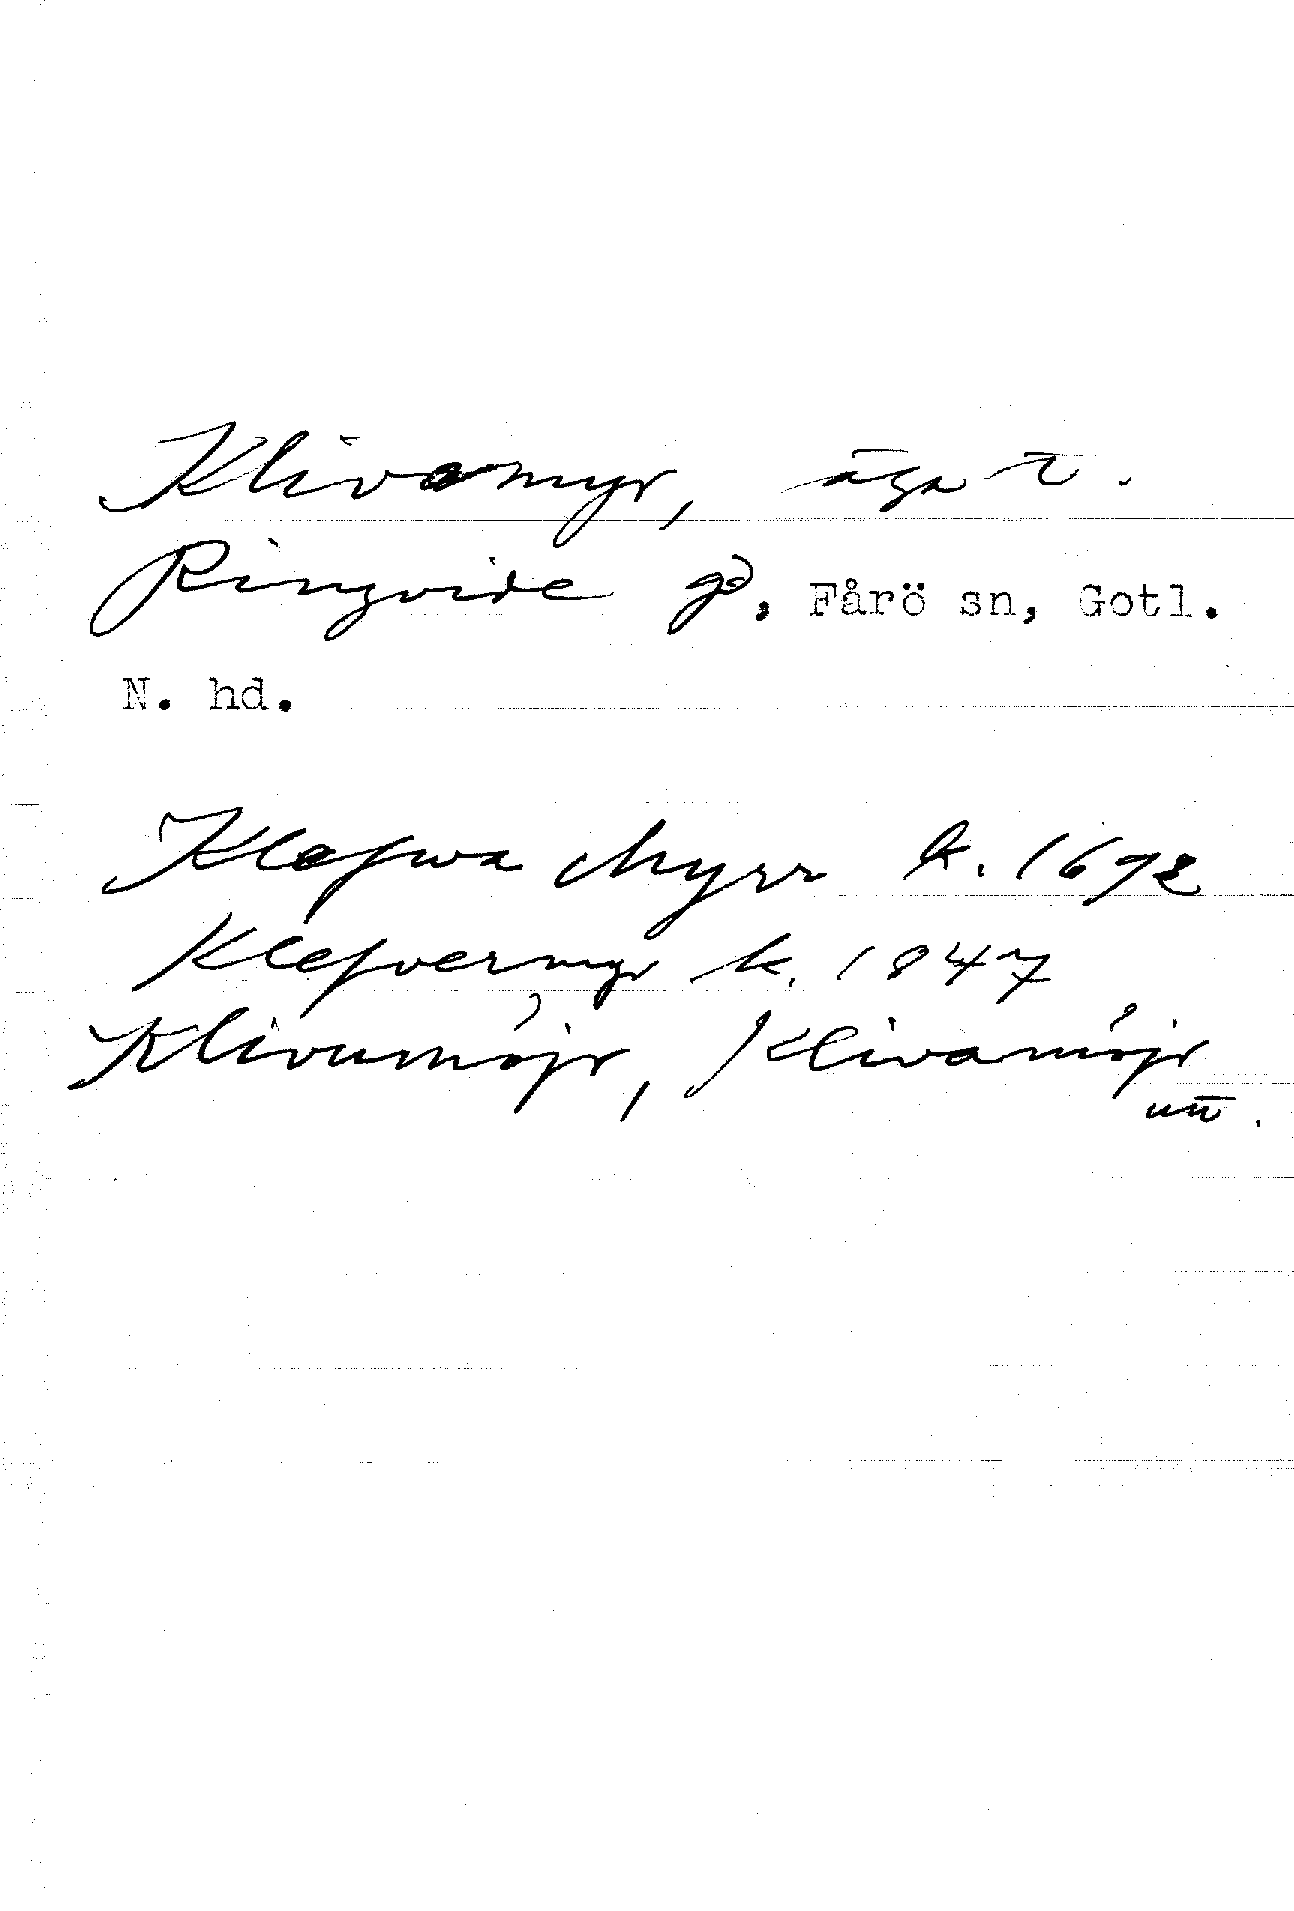 Klivamyr, äga t.
Ringvide gd, Fårö sn, Gotl.
N. hd.
Klefwa Myrr k. 1692
Klefvermyr k. 1847
Klivumöjr, Klivamöjr
utt.